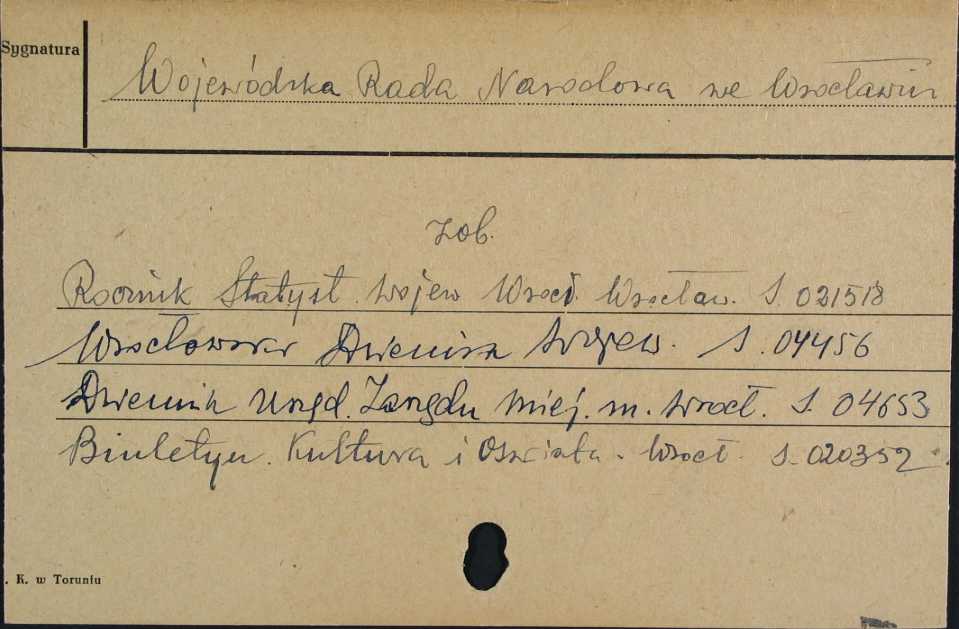 Sygnatura
Wojewódzka Rada Narodowa we Wrocławiu
zob.
Rocznik Statyst. wojew Wrocł. Wrocław. S. 021518
Wrocławski Dziennik Wojew. S. 04456
Dziennik Urzęd. Zarządu Miej. m. Wrocł. S. 04653
Biuletyn. Kultura i Oświata. Wrocł. S. 020352.
. K. w Toruniu